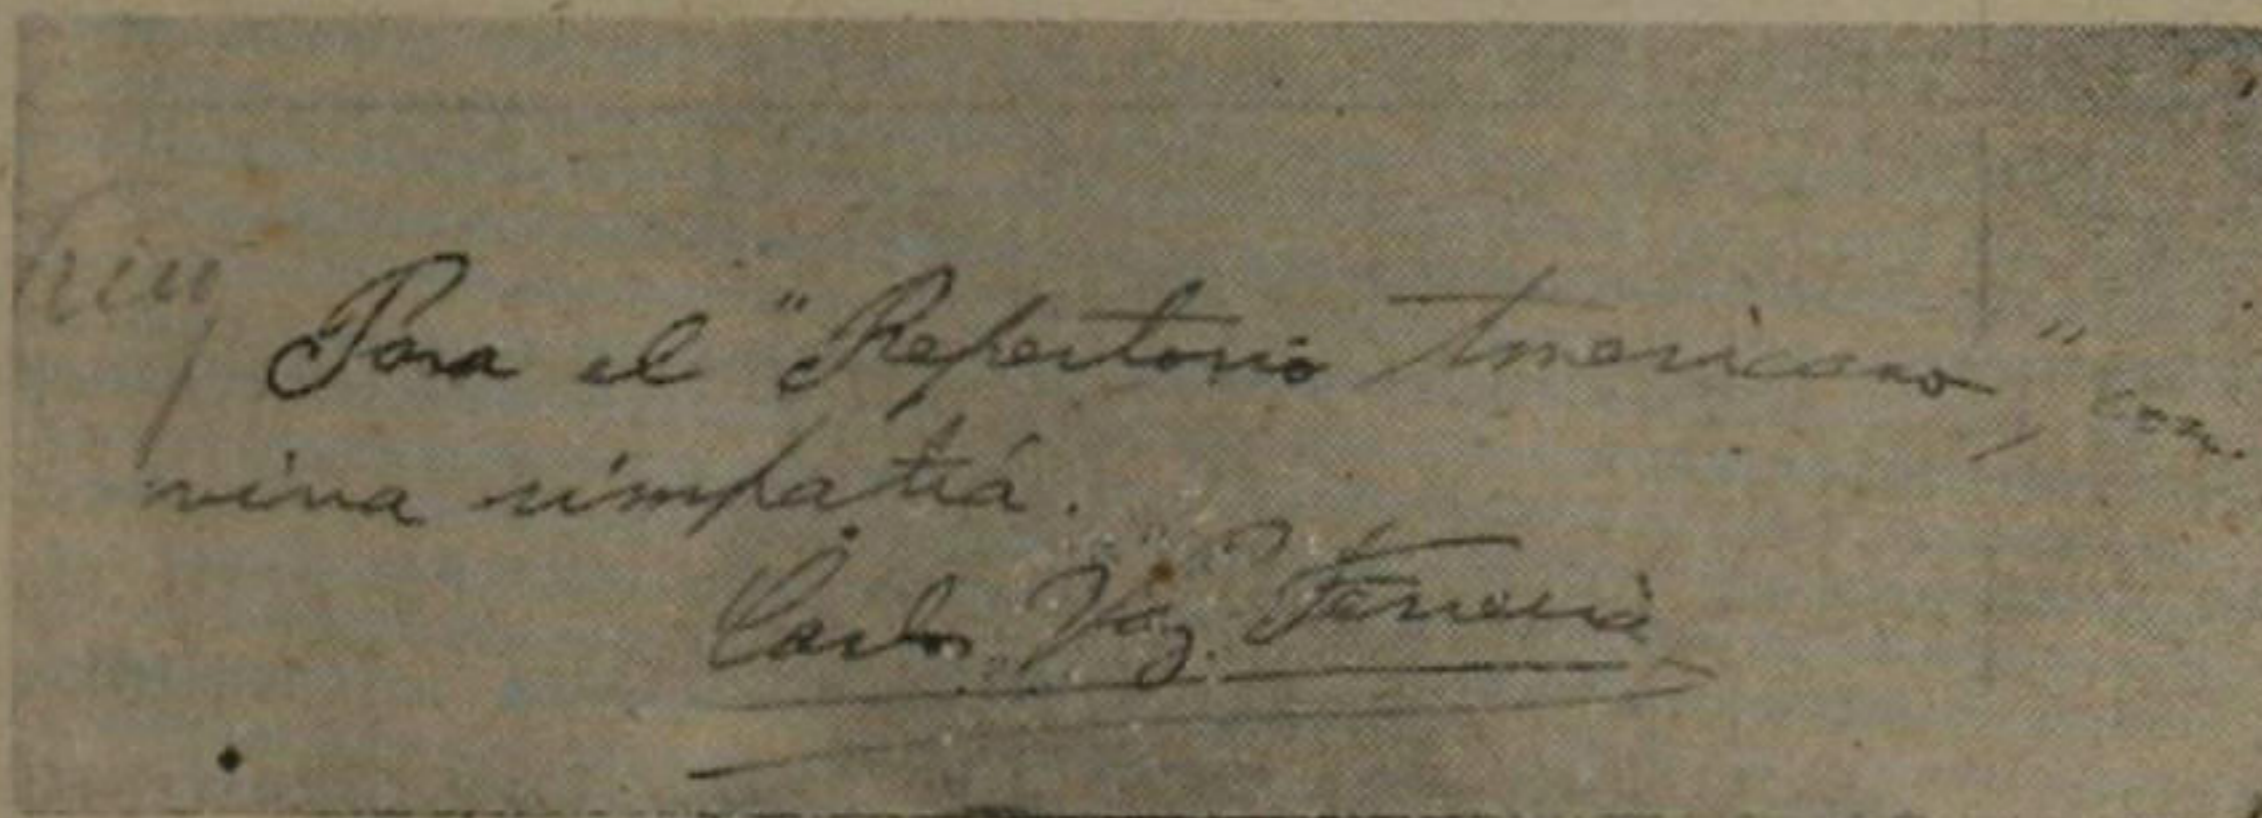 Para el "Repertorio Americano," con
viva simpatía.
Carlos Vaz Ferreira